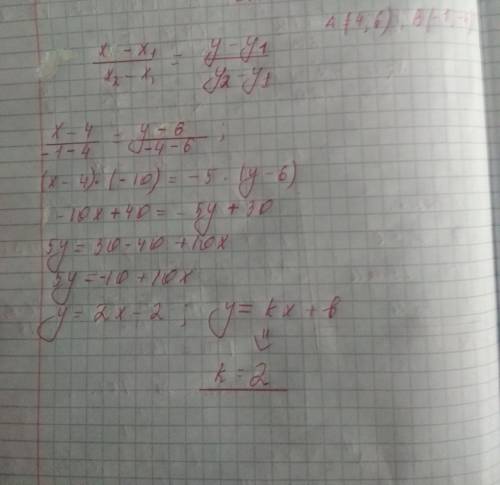 A (4, 6) , B (-1, -4)
x - x₁ / x₂ - x₁ = y - y₁ / y₂ - y₁
x - 4 / -1 - 4 = y - 6 / -4 - 6 ;
(x - 4) · (-10) = -5 · (y - 6)
-10x + 40 = -5y + 30
5y = 30 - 40 + 10x
5y = -10 + 10x
y = 2x - 2 ; y = kx + b
⇓
k = 2